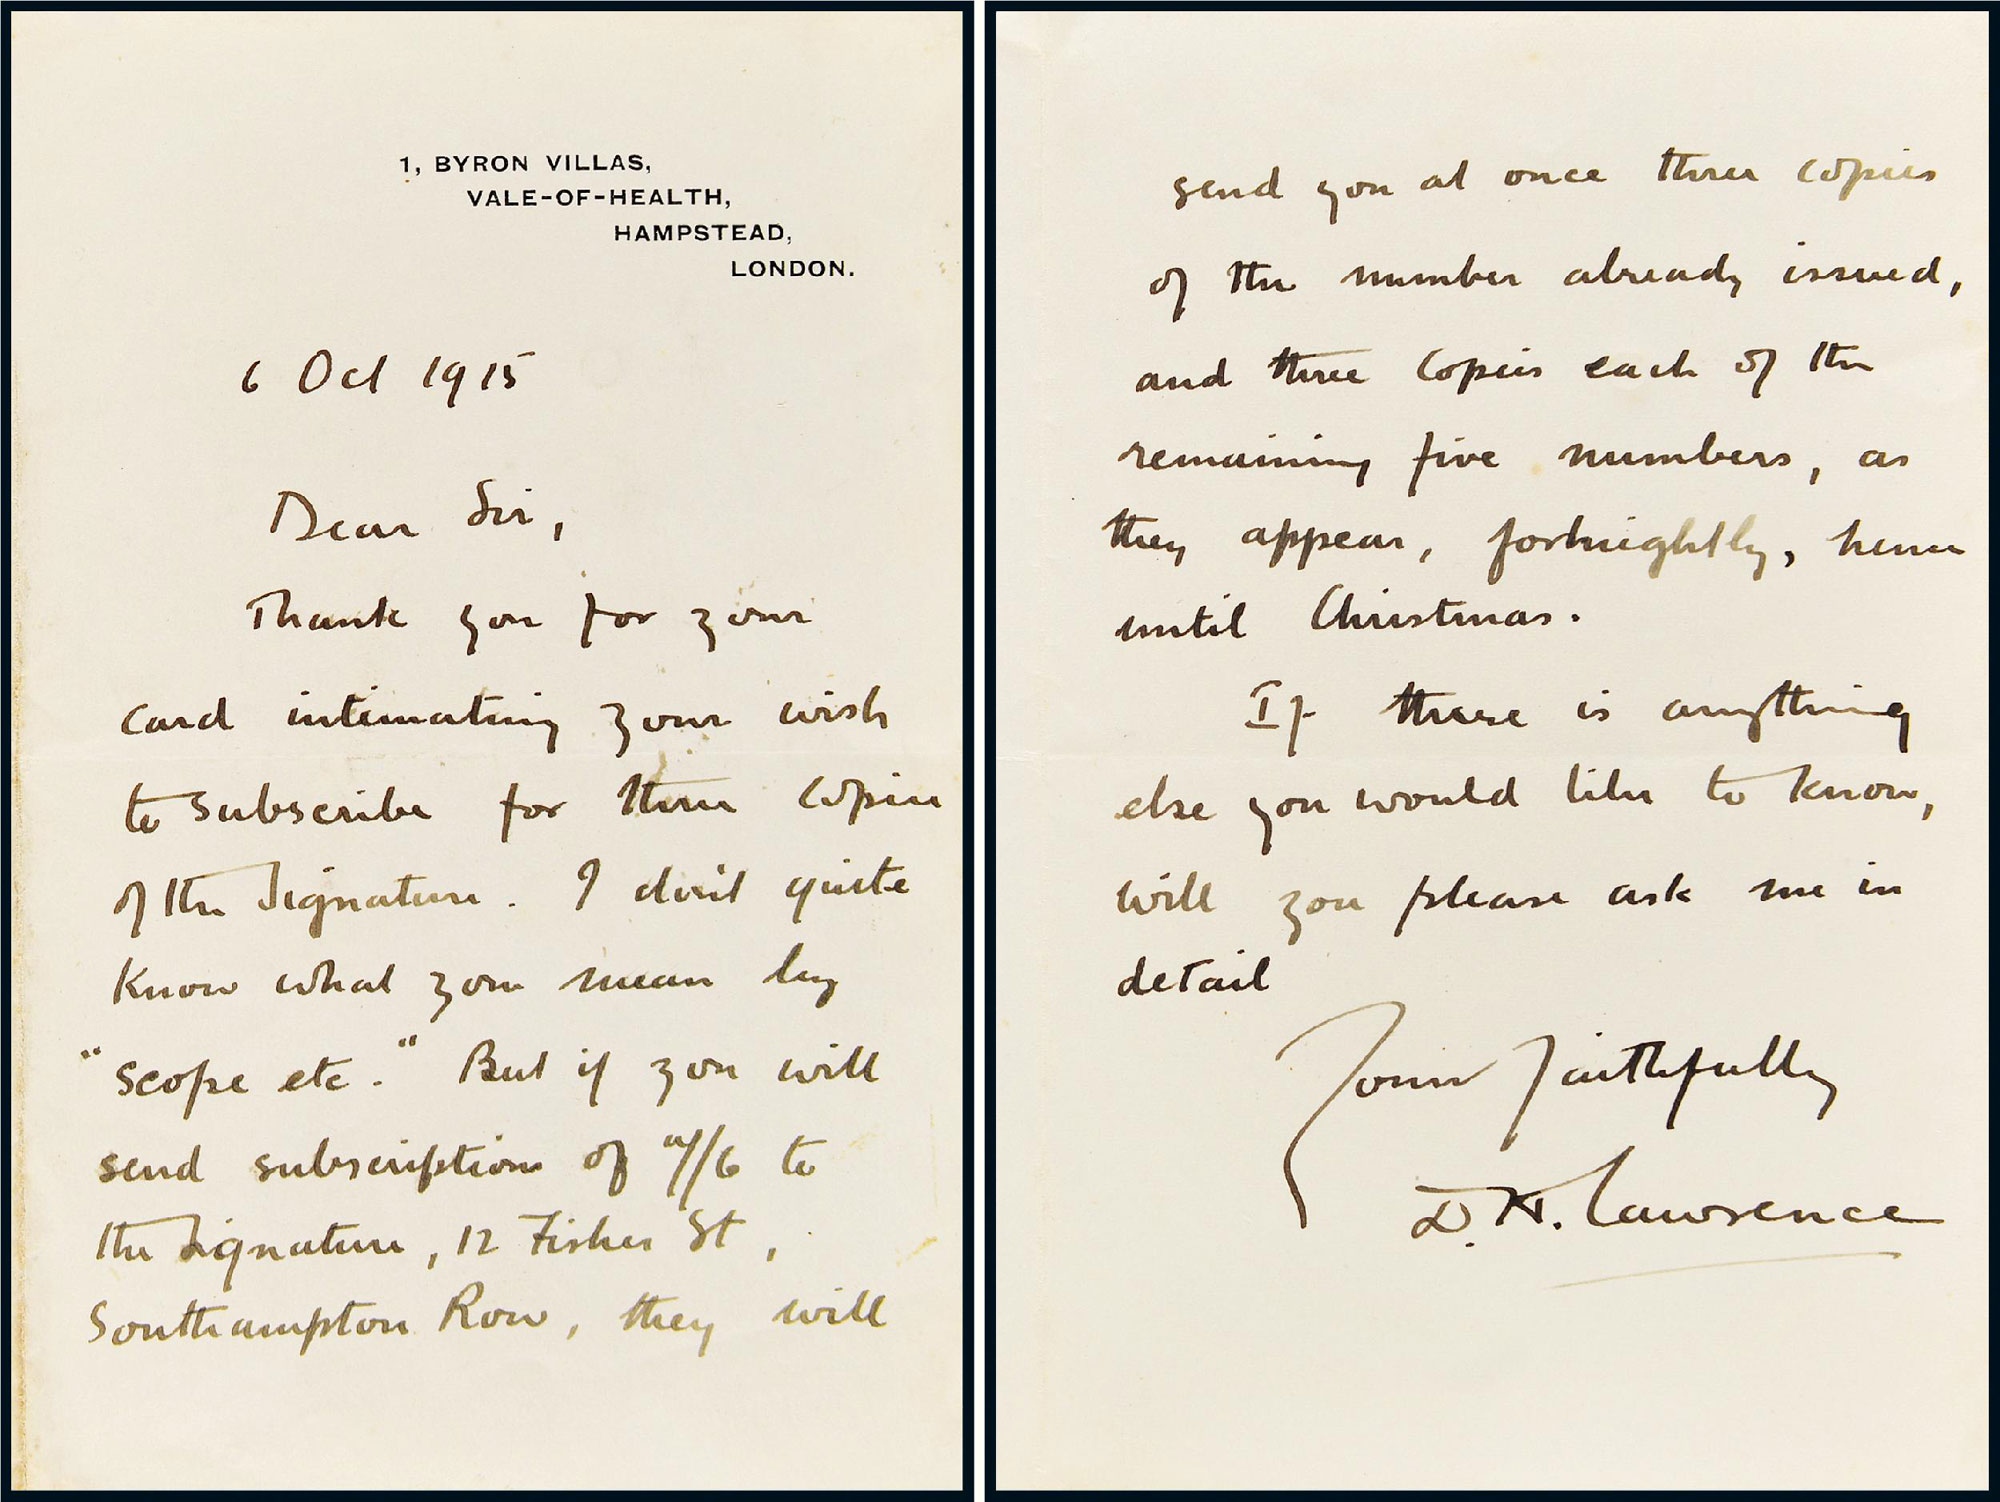 1, BYRON VILLAS,
VALE-OF-HEALTH,
HAMPSTEAD,
LONDON.
6 Oct 1915
Dear Sir,
Thank you for your
card intimating your wish
to subscribe for three copies
of the Signature. I don't quite
know what you mean by
"scope etc." But if you will
send subscription of /6 to
the Signature, 12 Fisher St,
Southampton Row, they will
send you at once three copies
of the number already issued,
and three copies each of the
remaining five numbers, as
they appear, fortnightly, hence
until Christmas.
If there is anything
else you would like to know,
will you please ask me in
detail
Yours Faithfully
D. H. Lawrence